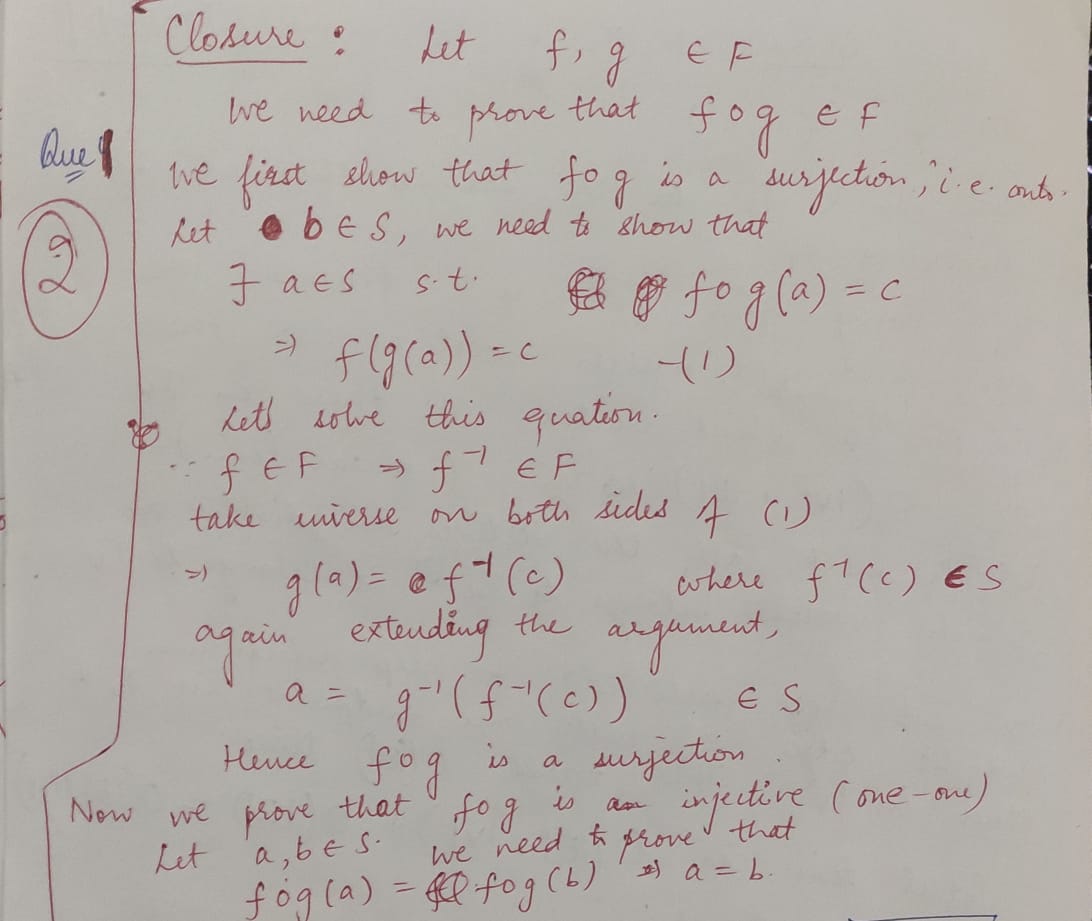 Closure : Let f, g ∈ F
We need to prove that fog ∈ F
Que
2
We first show that fog is a surjection, i.e. onto.
Let b ∈ S, we need to show that
∃ a ∈ S s.t. fog(a) = c
⇒ f(g(a)) = c -(1)
Let's solve this equation.
∵ f ∈ F ⇒ f⁻¹ ∈ F
take inverse on both sides of (1)
⇒ g(a) = f⁻¹(c) where f⁻¹(c) ∈ S
again extending the argument,
a = g⁻¹(f⁻¹(c)) ∈ S
Hence fog is a surjection.
Now we prove that fog is injective (one-one)
Let a, b ∈ S. We need to prove that
fog(a) = fog(b) ⇒ a = b.